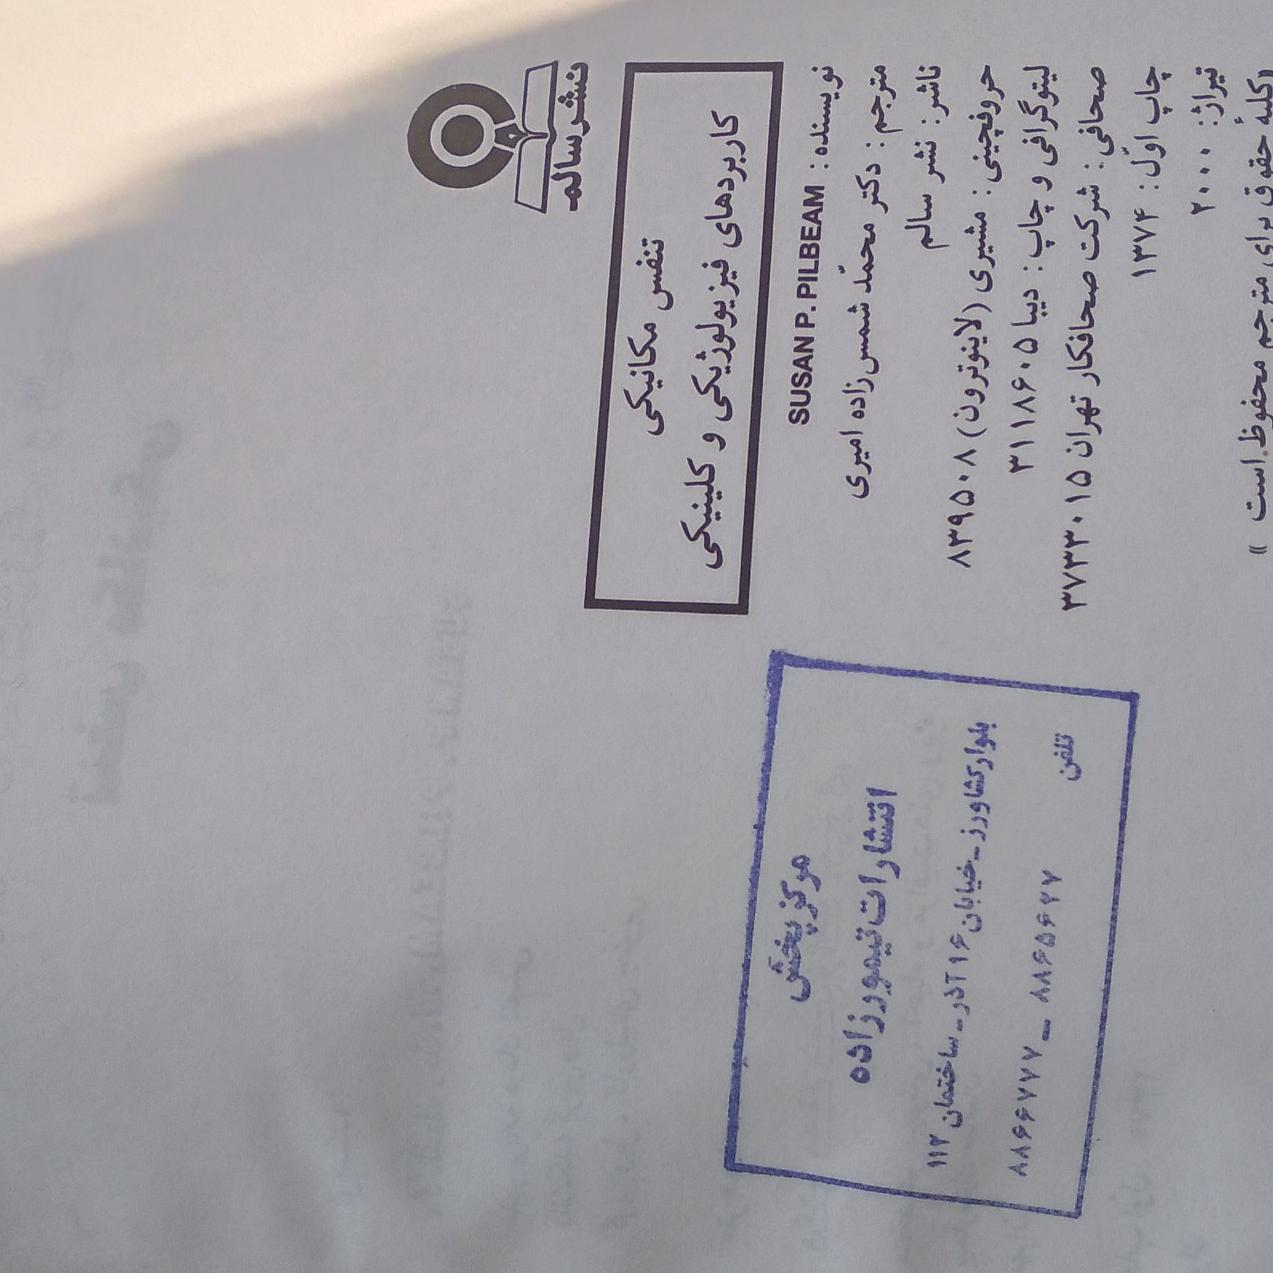 نشر سالم
تنفس مکانیکی
کاربردهای فیزیولوژیکی و کلینیکی
نویسنده : SUSAN P. PILBEAM
مترجم : دکتر محمّد شمس‌زاده امیری
ناشر : نشر سالم
حروفچینی : مشیری (لاینوترون) ۸۳۹۵۰۸
لیتوگرافی و چاپ : دیبا ۳۱۱۸۶۰۵
صحافی : شرکت صحافکار تهران ۳۷۳۳۰۱۵
چاپ اوّل : ۱۳۷۴
تیراژ : ۲۰۰۰
کلیهٔ حقوق برای مترجم محفوظ است »
مرکز پخش
انتشارات تیمورزاده
بلوار کشاورز ـ خیابان ۱۶ آذر ـ ساختمان ۱۱۲
تلفن
۸۸۶۶۷۷۷ ـ ۸۸۶۵۶۲۷